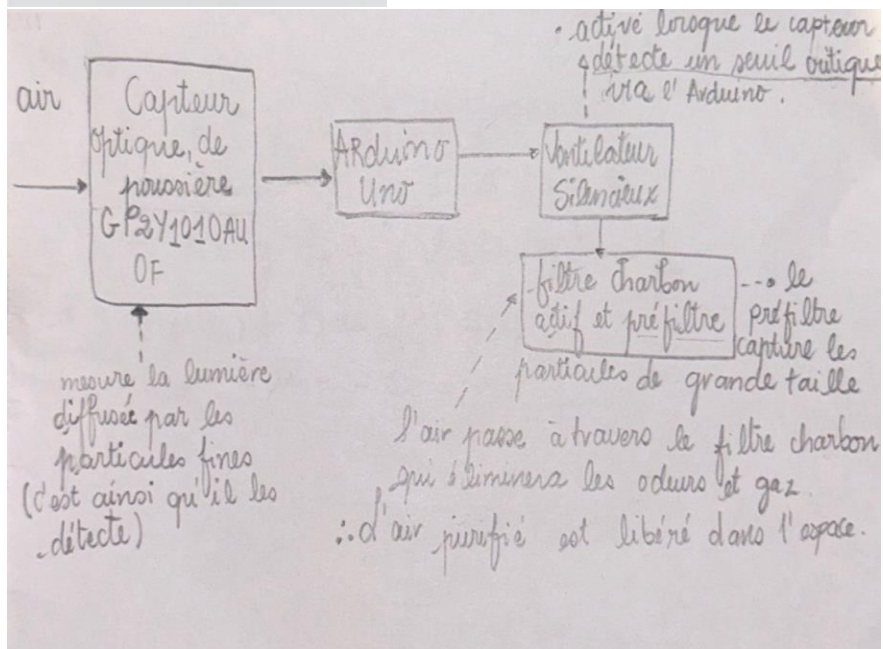 air
Capteur
optique, de
poussière
GP2Y1010AU
OF
ARduino
Uno
Ventilateur
Silencieux
• activé lorsque le capteur
détecte un seuil critique
via l'Arduino.
filtre charbon
actif et préfiltre
le
préfiltre
capture les
particules de grande taille
mesure la lumière
diffusée par les
particules fines
(c'est ainsi qu'il les
détecte)
l'air passe à travers le filtre charbon
qui éliminera les odeurs et gaz.
∴ l'air purifié est libéré dans l'espace.